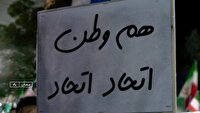 هم وطن
اتحاد اتحاد